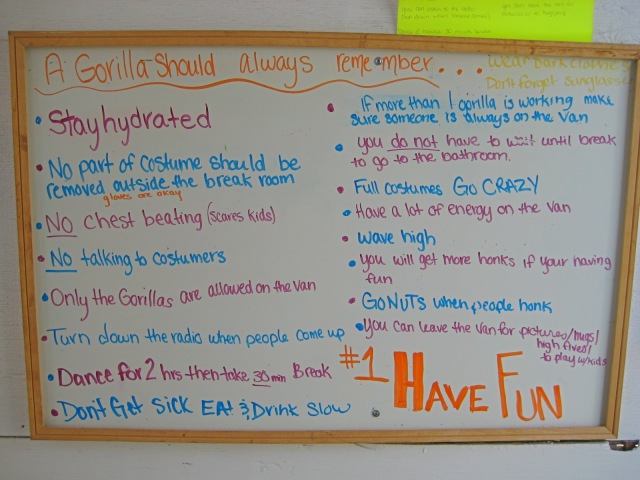 A Gorilla Should always remember...
Wear Dark Clothes
Don't forget sunglasses
• Stay hydrated
• No part of costume should be
removed outside the break room
gloves are okay
• NO chest beating (scares kids)
• NO talking to costumers
• Only the Gorillas are allowed on the van
• Turn down the radio when people come up
• Dance for 2 hrs then take 30 min Break
• Don't Get Sick Eat & Drink Slow
• If more than 1 gorilla is working make
sure someone is always on the van
• you do not have to wait until break
to go to the bathroom.
• Full costumes GO CRAZY
• Have a lot of energy on the van
• wave high
• you will get more honks if your having
fun
• GO NUTS when people honk
• You can leave the van for pictures/hugs/
high fives/
to play w/kids
#1 HAVE FUN